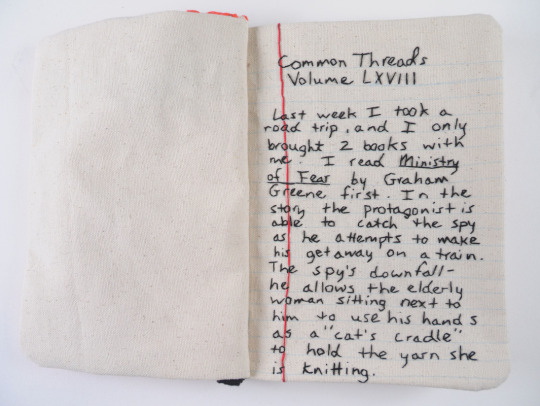 Common Threads
Volume LXVIII
Last week I took a
road trip, and I only
brought 2 books with
me. I read Ministry
of Fear by Graham
Greene first. In the
story the protagonist is
able to catch the spy
as he attempts to make
his getaway on a train.
The spy's downfall-
he allows the elderly
woman sitting next to
him to use his hands
as a "cat's cradle"
to hold the yarn she
is knitting.